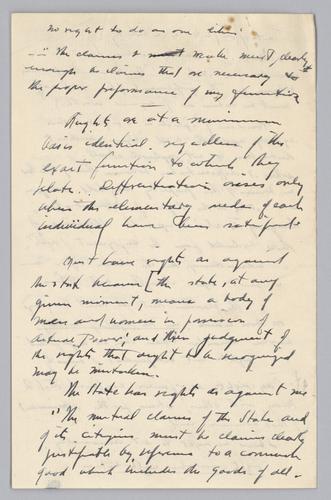 no right to do as one likes"
... "The claims I must make must, clearly
enough be claims that are necessary to
the proper performance of my function
Rights are at a minimum
basis identical regardless of the
exact function to which they
relate. Differentiation arises only
when the elementary needs of each
individual have been satisfied
Must have rights as against
the state because [the state, at any
given moment, means a body of
men and women in possession of
actual power; and their judgment of
the rights that ought to be recognized
may be mistaken.
The State has rights as against me
"The mutual claims of the State and
of its citizens must be claims clearly
justifiable by reference to a common
good which includes the goods of all.